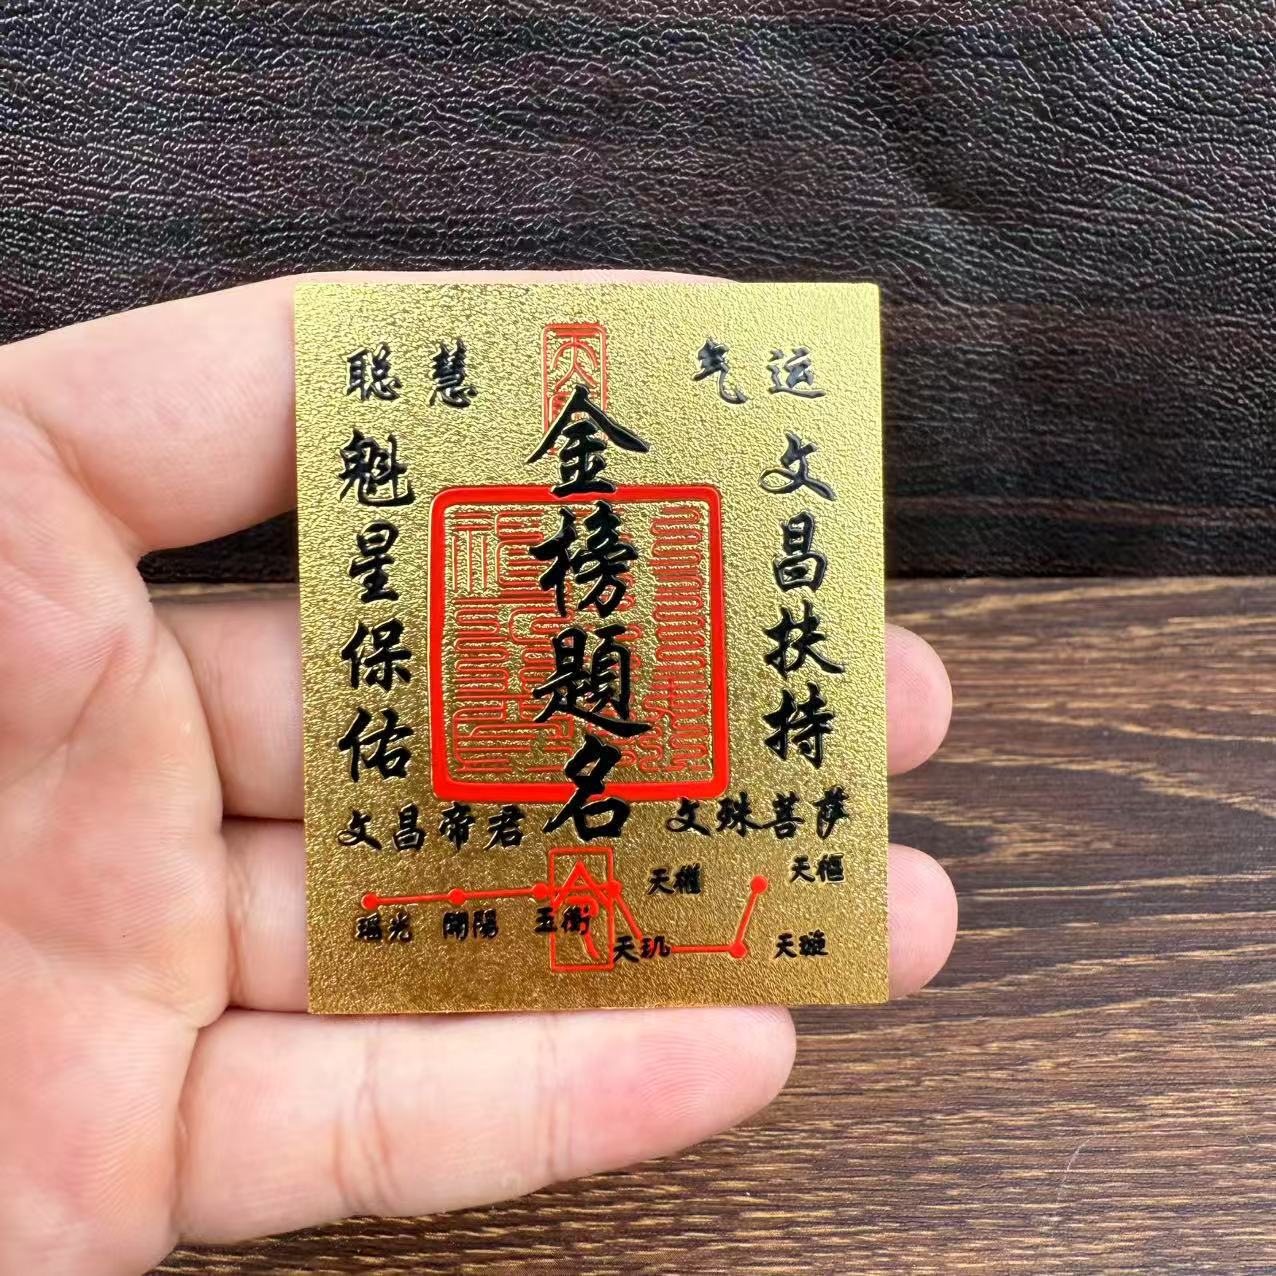 聪慧
气运
金榜題名
文昌扶持
魁星保佑
文昌帝君
文殊菩萨
天樞
天璇
天玑
天權
玉衡
開陽
瑶光